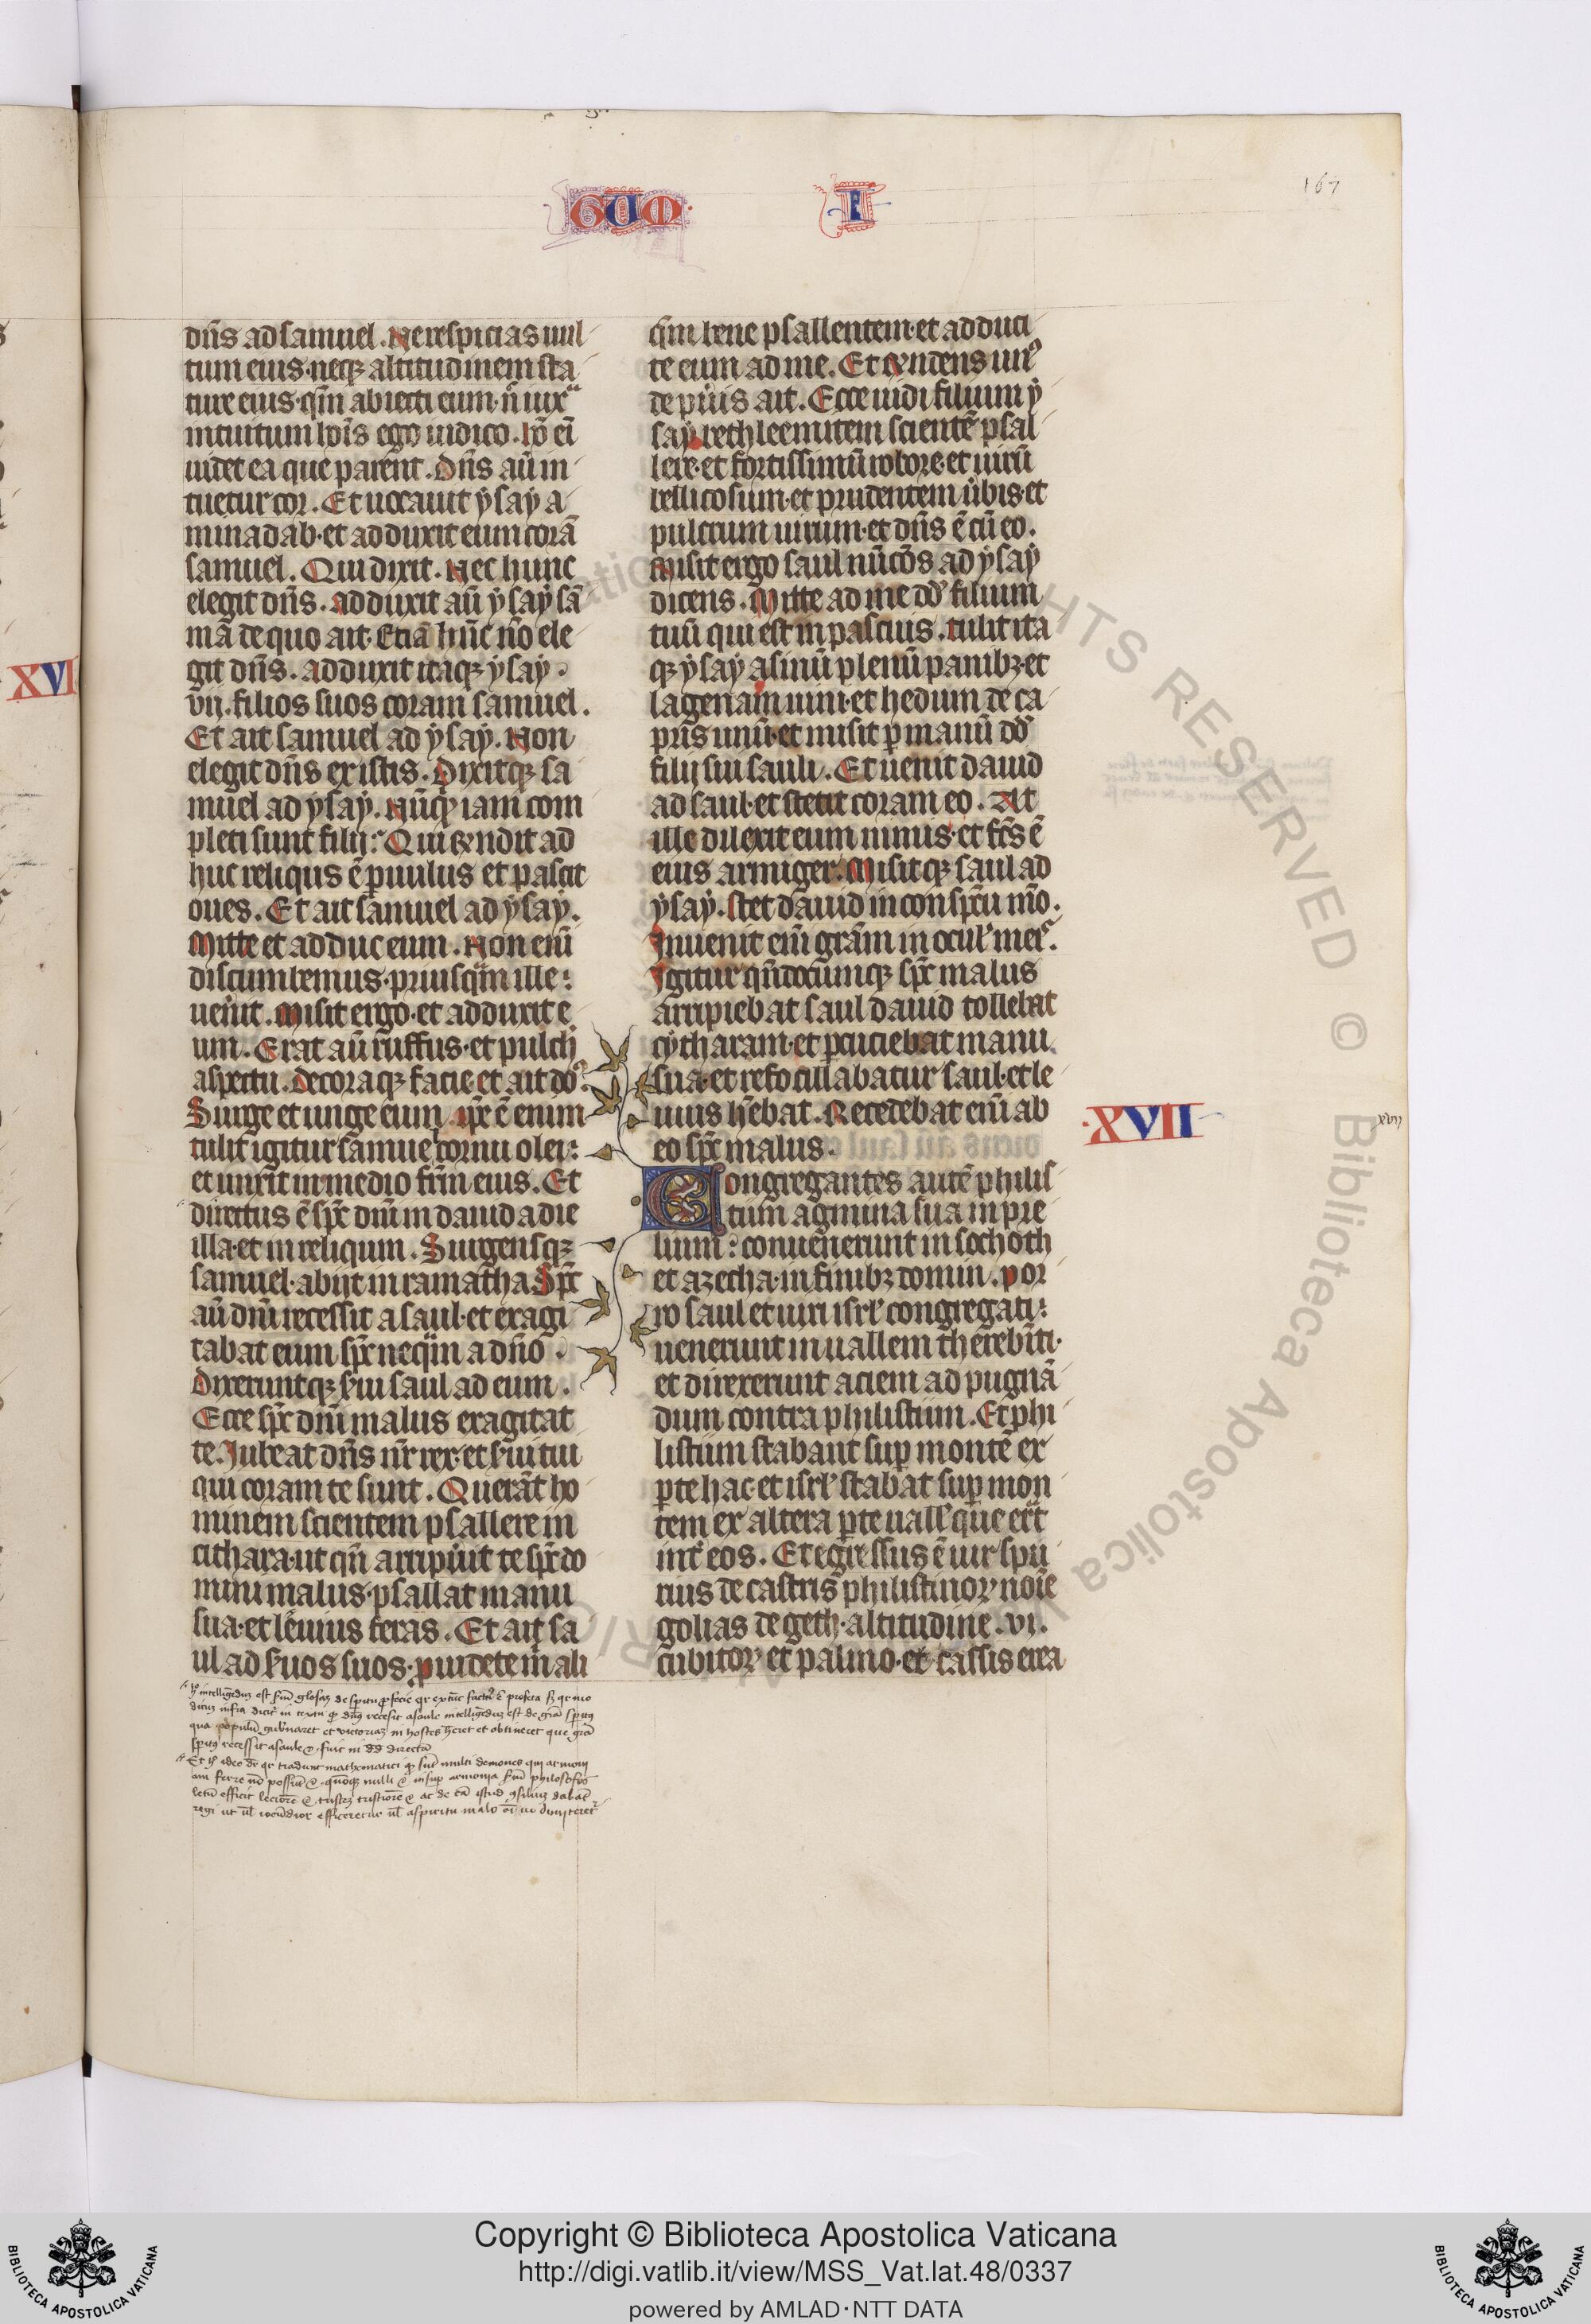 GUM I
167
dn̄s ad samuel. Ne respicias uul
tum eius. neqꝫ altitudinem sta
ture eius. qm̄ abieci eum. n̄ iuxᵃ
intuitum hoīs ego iudico. hō eī
uidet ea que parent. Dn̄s aū in
tuetur cor. Et uocauit ysay a
minadab. et adduxit eum corā
samuel. Qui dixit. Nec hunc
elegit dn̄s. adduxit aū ysay sā
mā de quo ait. Etiā hūc nō ele
git dn̄s. adduxit itaqꝫ ysay.
vij. filios suos coram samuel.
Et ait samuel ad ysay. Non
elegit dn̄s ex istis. Dixitqꝫ sa
muel ad ysay. Nūqͥd iam com
pleti sunt filij: Qui rn̄dit ad
huc reliqus ē puulus et pascit
oues. Et ait samuel ad ysay.
Mitte et adduc eum. Non enī
discumbemus. priusqͣm ille:
uen̄it. Misit ergo. et adduxit e
um. Erat aū ruffus. et pulch̄
aspectu. decoraqꝫ facie. et ait do᷒.
Surge et unge eum. ip̄e ē enim
tulit igitur samuel cornu olei:
et unxit in medio frm̄ eius. Et
directus ē spc̄ dnī in dauid a die
illa. et in reliqum. Surgensqꝫ
samuel. abijt in ramatha Spc̄
aū dnī recessit a saul. et exagi
tabat eum spc̄ neqͣm a dn̄o.
Dixeruntqꝫ s̄ui saul ad eum.
Ecce spc̄ dnī malus exagitat
te. Iubeat dn̄s nr̄ rex. et s̄ui tui
qui coram te sunt. Querāt ho
minem scientem psallere in
cithara. ut qn̄ arripūit te spc̄ do
mini malus. psallat manu
sua. et leuius feras. Et ait sa
ul ad s̄uos suos. puidete m̄ ali
qm̄ bene psallentem. et adduci
te eum ad me. Et rn̄dens un᷒
de pūis ait. Ecce uidi filium y
say bethleemitem scientē psal
lere. et fortissimū robore. et uirū
bellicosum. et prudentem ūbis. et
pulcrum uirum. et dn̄s ē cū eo.
Misit ergo saul nūcōs ad ysay
dicens. Mitte ad me dd̄ filium
tuū qui est in pascuis. tulit ita
qꝫ ysay asinū plenū panibꝫ. et
lagenam uini. et hedum de ca
pris unū. et misit p manū dd̄
filij sui sauli. Et uenit dauid
ad saul. et stetit coram eo. At
ille dilexit eum nimis. et fc̄s ē
eius armiger. Misitqꝫ saul ad
ysay. stet dauid in conspc̄u mō.
Inuenit enī gram̄ in ocul̄ meis.
Igitur qn̄documqꝫ spc̄ malus
arripiebat saul dauid tollebat
cytharam. et pcuciebat manu
sua. et refocillabatur saul. et le
uius h̄ebat. Recedebat enī ab
eo spc̄ malus.
Congregantes autē philis
tiim agmina sua in pre
lium: conuenerunt in sochoth
et azecha. in finibꝫ domin. por
ro saul et uiri isrl̄ congregati:
uenerunt in uallem therebīti.
et direxerunt aciem ad pugnā
dum contra philistiim. Et phi
listiim stabant sup montē ex
pte hac. et isrl̄ stabat sup mon
tem ex altera pte uall̄ que erāt
int̄ eos. Et egressus ē uir spu
rius de castris philistinoꝝ noīe
golias de geth. altitudine. vi.
cubitoꝝ et palmo. et cassis erea
XVI
XVII
xvij
Copyright © Biblioteca Apostolica Vaticana
http://digi.vatlib.it/view/MSS_Vat.lat.48/0337
powered by AMLAD·NTT DATA
BIBLIOTECA APOSTOLICA VATICANA
BIBLIOTECA APOSTOLICA VATICANA